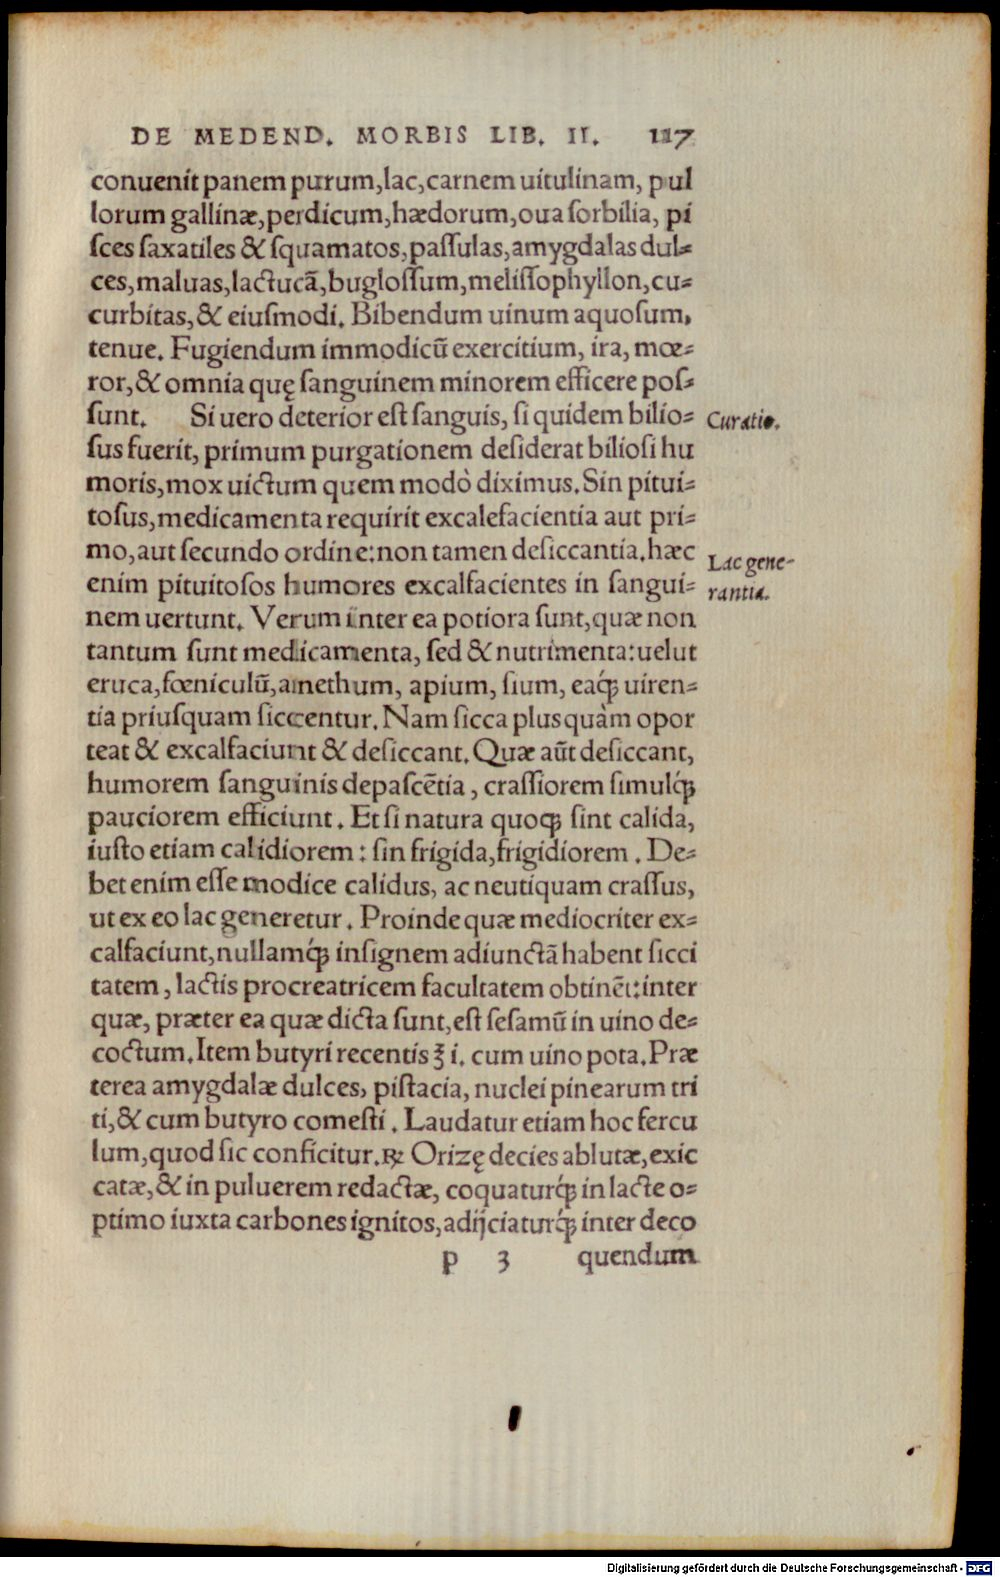 DE MEDEND. MORBIS LIB. II. 117
conuenit panem purum, lac, carnem uitulinam, pul
lorum gallinæ, perdicum, hædorum, oua ſorbilia, pi
ſces ſaxatiles & ſquamatos, paſſulas, amygdalas dul⸗
ces, maluas, lactucã, bugloſſum, meliſſophyllon, cu⸗
curbitas, & eiuſmodi. Bibendum uinum aquoſum,
tenue. Fugiendum immodicũ exercitium, ira, mœ⸗
ror, & omnia quę ſanguinem minorem efficere poſ⸗
ſunt. Si uero deterior eſt ſanguis, ſi quidem bilio⸗
Curatio.
ſus fuerit, primum purgationem deſiderat bilioſi hu
moris, mox uictum quem modò diximus. Sin pitui⸗
toſus, medicamenta requirit excalefacientia aut pri⸗
mo, aut ſecundo ordine: non tamen deſiccantia. hæc
Lac gene-
enim pituitoſos humores excalfacientes in ſangui⸗
rantia.
nem uertunt. Verum inter ea potiora ſunt, quæ non
tantum ſunt medicamenta, ſed & nutrimenta: uelut
eruca, fœniculũ, amethum, apium, ſium, eaq́ꝫ uiren⸗
tia priuſquam ſiccentur. Nam ſicca pluſquàm opor
teat & excalfaciunt & deſiccant. Quæ aũt deſiccant,
humorem ſanguinis depaſcẽtia, craſſiorem ſimulq́ꝫ
pauciorem efficiunt. Et ſi natura quoqꝫ ſint calida,
iuſto etiam calidiorem: ſin frigida, frigidiorem. De⸗
bet enim eſſe modice calidus, ac neutiquam craſſus,
ut ex eo lac generetur. Proinde quæ mediocriter ex⸗
calfaciunt, nullamq́ꝫ inſignem adiunctã habent ſicci
tatem, lactis procreatricem facultatem obtinẽt: inter
quæ, præter ea quæ dicta ſunt, eſt ſeſamũ in uino de⸗
coctum. Item butyri recentis ℥ i. cum uino pota. Præ
terea amygdalæ dulces, piſtacia, nuclei pinearum tri
ti, & cum butyro comeſti. Laudatur etiam hoc fercu
lum, quod ſic conficitur. ℞ Orizę decies ablutæ, exic
catæ, & in puluerem redactæ, coquaturq́ꝫ in lacte o⸗
ptimo iuxta carbones ignitos, adijciaturq́ꝫ inter deco
p 3 quendum
Digitalisierung gefördert durch die Deutsche Forschungsgemeinschaft - DFG